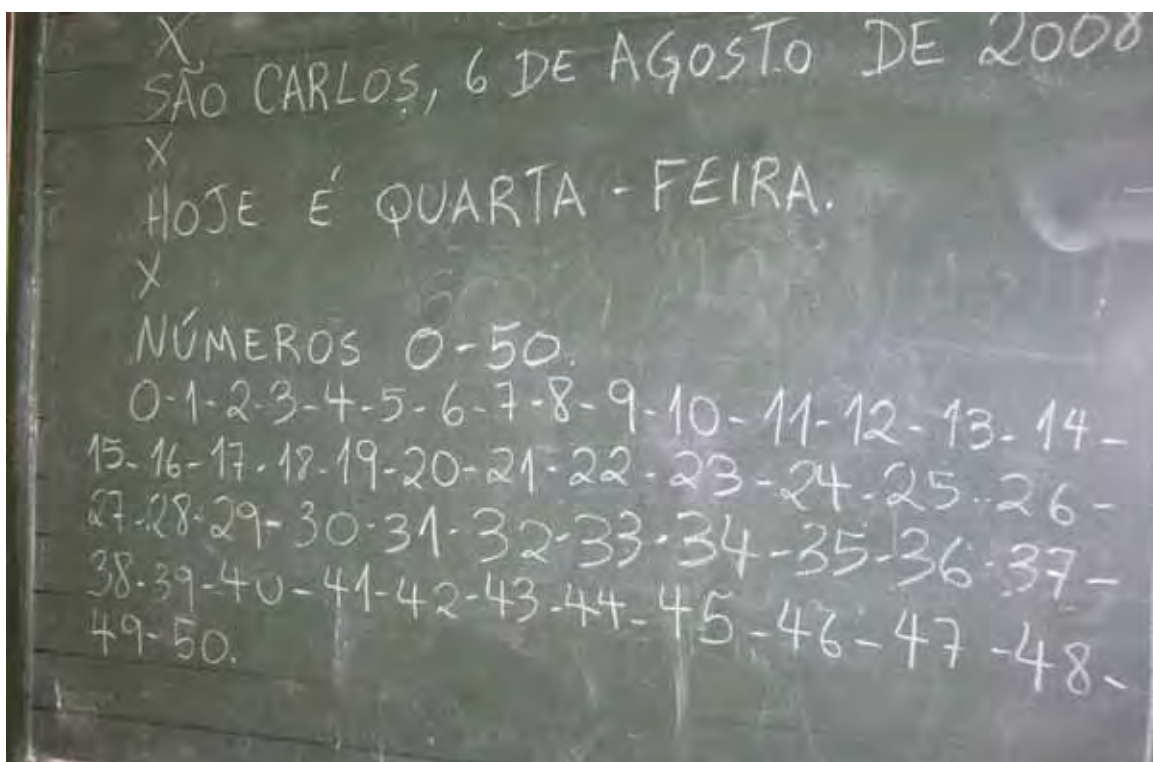 X
SÃO CARLOS, 6 DE AGOSTO DE 2008
X
HOJE É QUARTA-FEIRA.
X
NÚMEROS 0-50.
0-1-2-3-4-5-6-7-8-9-10-11-12-13-14-
15-16-17-18-19-20-21-22-23-24-25-26-
27-28-29-30-31-32-33-34-35-36-37-
38-39-40-41-42-43-44-45-46-47-48-
49-50.